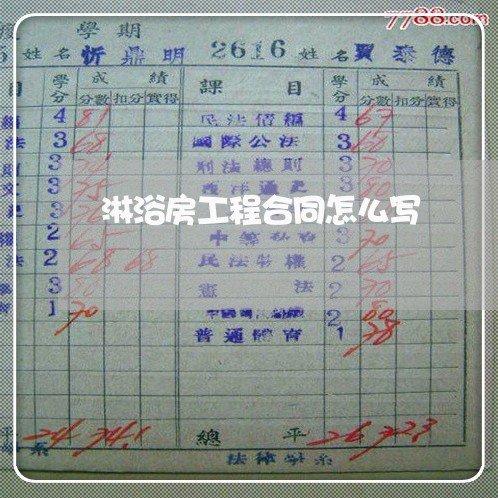 7788.com
學期
5 姓名 忻鼎明 2616 姓名 賈泰德
目 學分 成績 課目 學分 成績
分數 扣分 實得 分數 扣分 實得
4 81 民法債編 4 67
法 3 68 國際公法 3 60
3 刑法總則 3 70
文 3 75 西洋通史 3 80
淋浴房工程合同怎么写
2 65 3 70
法 2 68 68 民法物權 2 65
3 80 憲法 2 70
1 70 2 80
普通體育 1 78
平 24 74.1 總平 26 72.3
系 法律學系